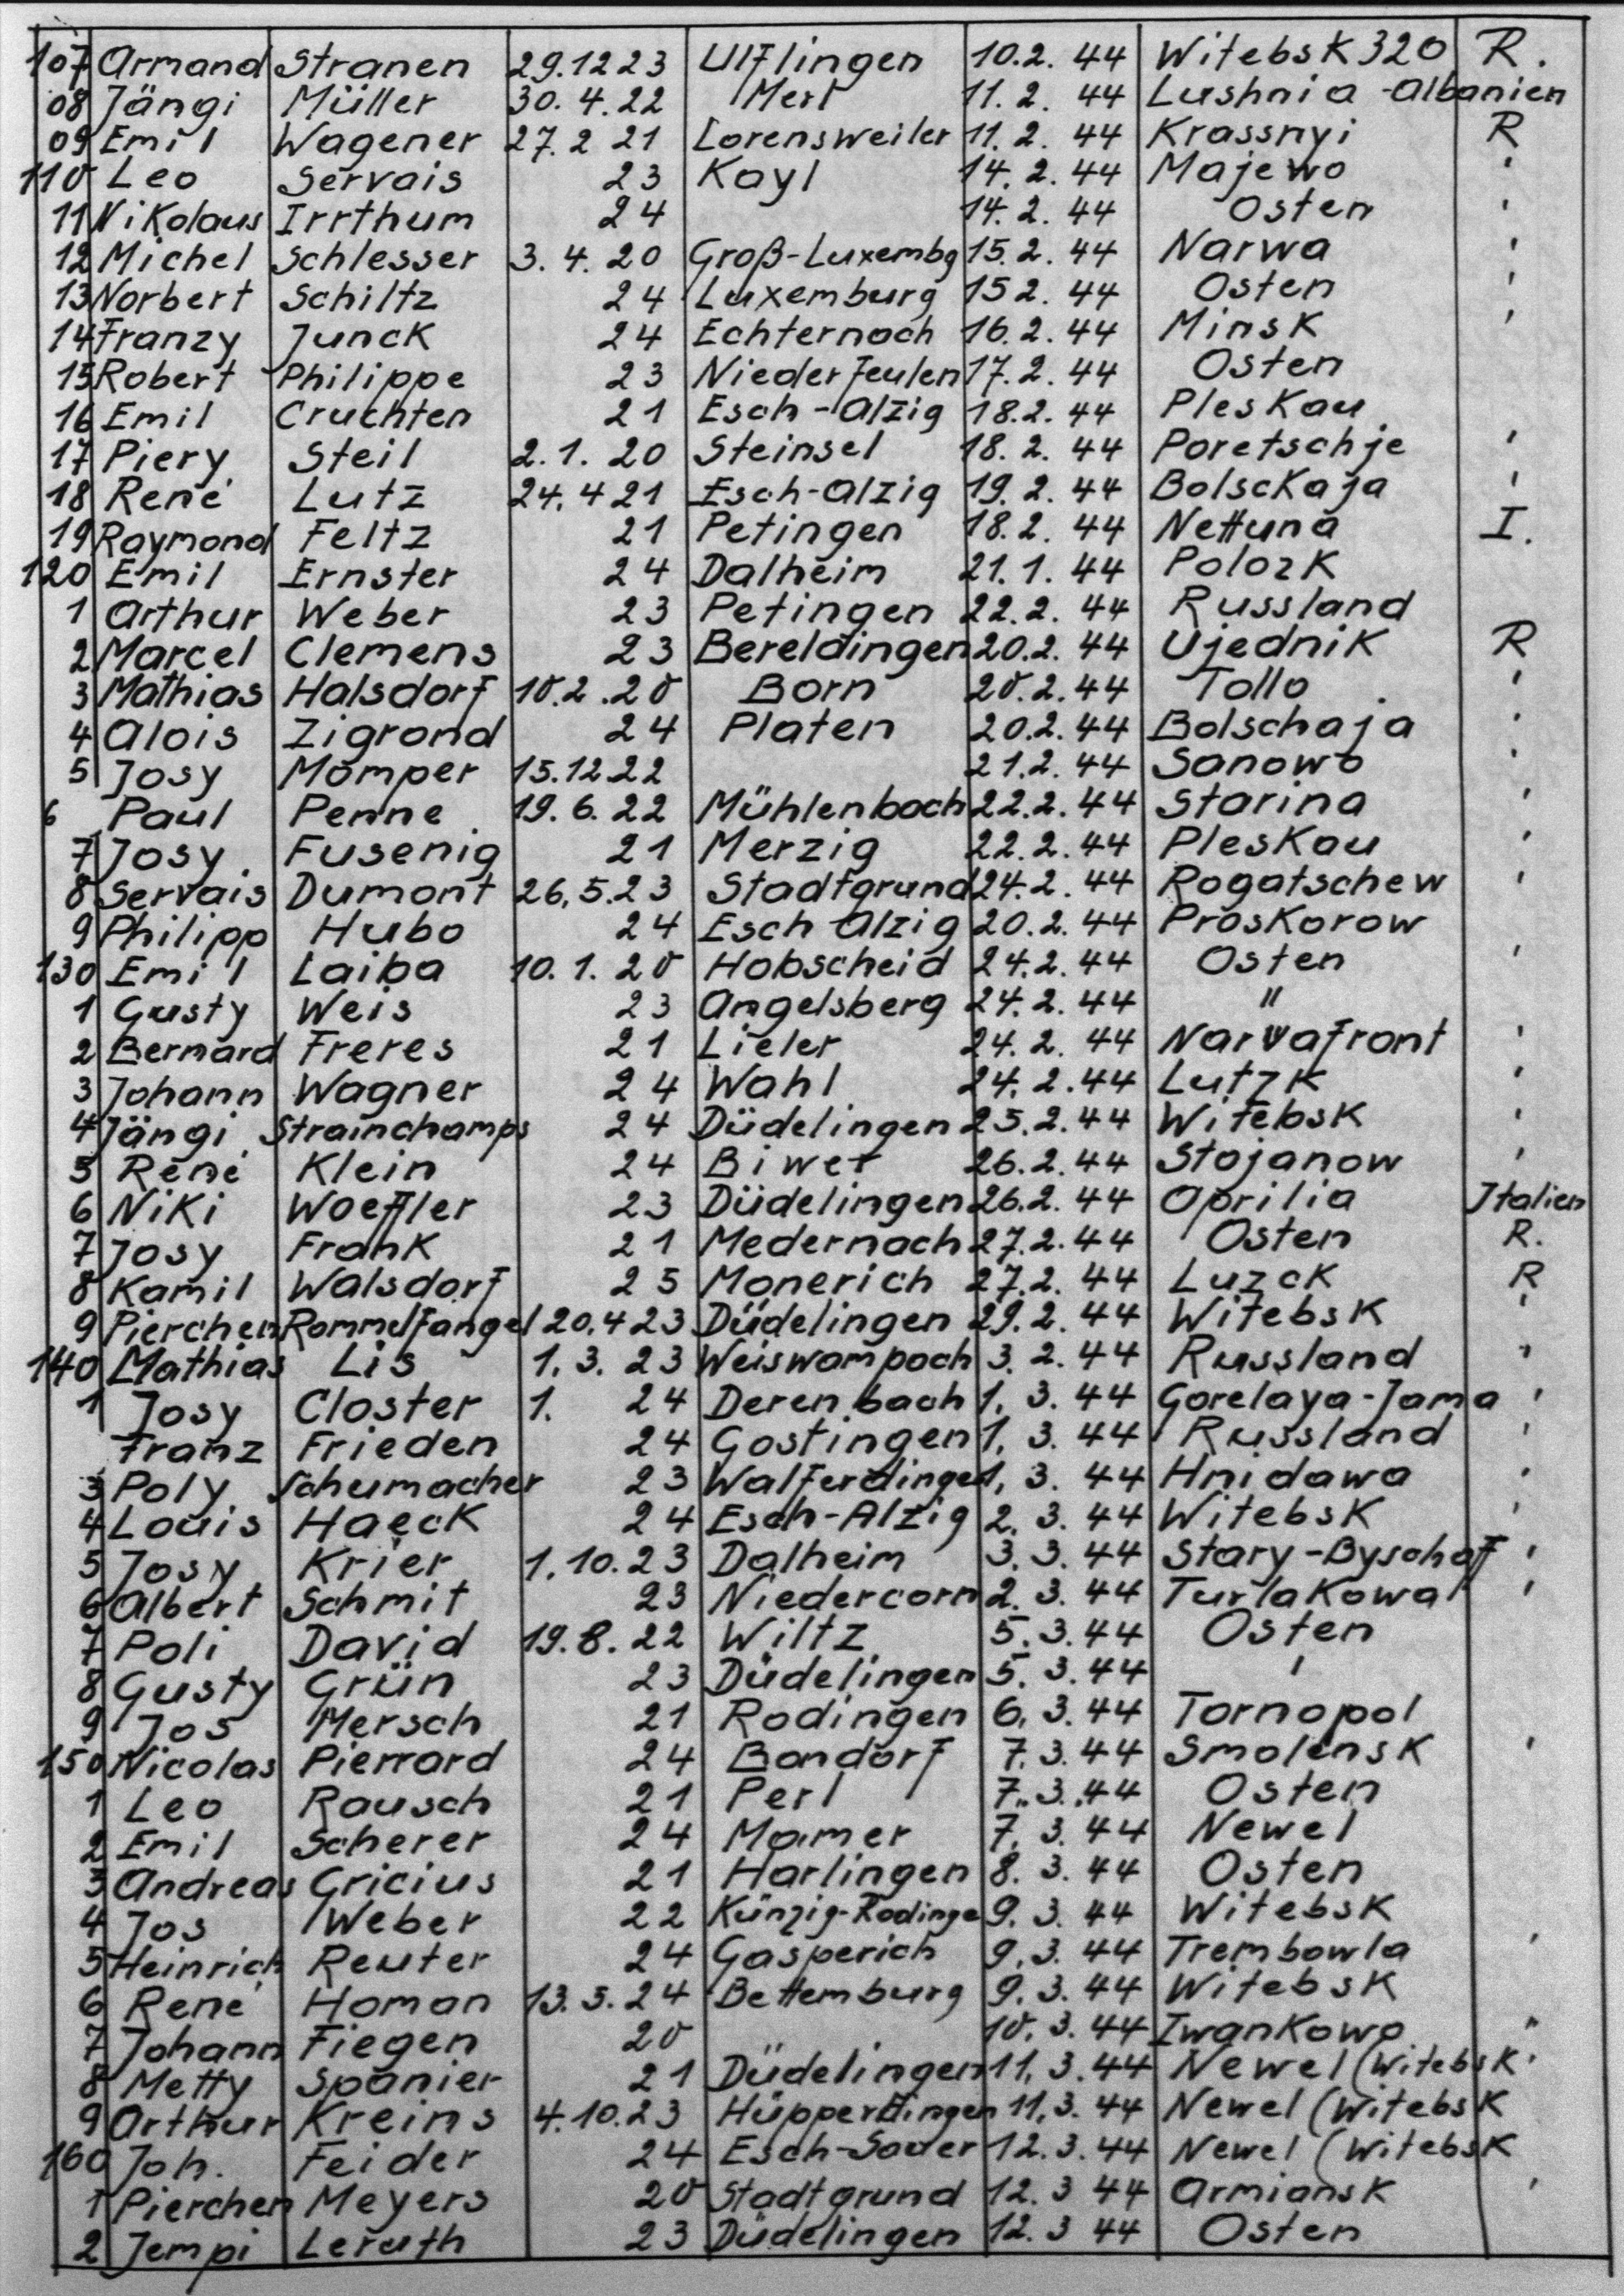 107 Armand Stranen 29.12 23 Ulflingen 10.2. 44 Witebsk 320 R.
08 Jängi Müller 30. 4. 22 Merl 11. 2. 44 Lushnia - Albanien
09 Emil Wagener 27. 2 21 Lorensweiler 11. 2. 44 Krassnyi R
110 Leo Servais 23 Kayl 14. 2. 44 Majewo '
11 Nikolaus Irrthum 24 14. 2. 44 Osten '
12 Michel Schlesser 3. 4. 20 Groß-Luxembg 15. 2. 44 Narwa '
13 Norbert Schiltz 24 Luxemburg 15 2. 44 Osten '
14 Franzy Junck 24 Echternach 16. 2. 44 Minsk '
15 Robert Philippe 23 Niederfeulen 17. 2. 44 Osten
16 Emil Cruchten 21 Esch-Alzig 18. 2. 44 Pleskau
17 Piery Steil 2. 1. 20 Steinsel 18. 2. 44 Poretschje '
18 René Lutz 24. 4 21 Esch-Alzig 19. 2. 44 Bolsckaja '
19 Raymond Feltz 21 Petingen 18. 2. 44 Nettuna I.
120 Emil Ernster 24 Dalheim 21. 1. 44 Polozk
1 Arthur Weber 23 Petingen 22. 2. 44 Russland
2 Marcel Clemens 23 Bereldingen 20. 2. 44 Ujednik R
3 Mathias Halsdorf 10. 2. 20 Born 20. 2. 44 Tollo '
4 Alois Zigrond 24 Platen 20. 2. 44 Bolschaja '
5 Josy Momper 15.12.22 21. 2. 44 Sanowo '
6 Paul Penne 19. 6. 22 Mühlenbach 22. 2. 44 Starina '
7 Josy Fusenig 21 Merzig 22. 2. 44 Pleskau '
8 Servais Dumont 26. 5. 23 Stadtgrund 24. 2. 44 Rogatschew '
9 Philipp Hubo 24 Esch Alzig 20. 2. 44 Proskorow
130 Emil Laiba 10. 1. 20 Hobscheid 24. 2. 44 Osten '
1 Gusty Weis 23 Angelsberg 24. 2. 44 "
2 Bernard Freres 21 Lieler 24. 2. 44 Narwafront '
3 Johann Wagner 24 Wahl 24. 2. 44 Lutzk '
4 Jängi Strainchamps 24 Düdelingen 25. 2. 44 Witebsk '
5 René Klein 24 Biwer 26. 2. 44 Stojanow '
6 Niki Woeffler 23 Düdelingen 26. 2. 44 Aprilia Italien
7 Josy Frank 21 Medernach 27. 2. 44 Osten R.
8 Kamil Walsdorf 25 Monerich 27. 2. 44 Luzck R
9 Pierchen Rommelfangel 20. 4 23 Düdelingen 29. 2. 44 Witebsk '
140 Mathias Lis 1. 3. 23 Weiswampach 3. 2. 44 Russland '
1 Josy Closter 1. 24 Derenbach 1. 3. 44 Gorelaya-Jama '
Franz Frieden 24 Gostingen 1. 3. 44 Russland '
3 Poly Schumacher 23 Walferdingen 1. 3. 44 Hnidawa '
4 Louis Haeck 24 Esch-Alzig 2. 3. 44 Witebsk '
5 Josy Krier 1. 10. 23 Dalheim 3. 3. 44 Stary-Byschof '
6 Albert Schmit 23 Niedercorn 2. 3. 44 Turlakowa '
7 Poli David 19. 8. 22 Wiltz 5. 3. 44 Osten
8 Gusty Grün 23 Düdelingen 5. 3. 44 '
9 Jos Mersch 21 Rodingen 6. 3. 44 Tornopol
150 Nicolas Pierrard 24 Bondorf 7. 3. 44 Smolensk '
1 Leo Rausch 21 Perl 7. 3. 44 Osten
2 Emil Scherer 24 Mamer 7. 3. 44 Newel
3 Andreas Gricius 21 Harlingen 8. 3. 44 Osten
4 Jos Weber 22 Künzig-Rodinge 9. 3. 44 Witebsk
5 Heinrich Reuter 24 Gasperich 9. 3. 44 Trembowla '
6 René Homan 13. 3. 24 Bettemburg 9. 3. 44 Witebsk
7 Johann Fiegen 20 10. 3. 44 Iwankowo "
8 Metty Spanier 21 Düdelingen 11. 3. 44 Newel (Witebsk '
9 Arthur Kreins 4. 10. 23 Hüpperdingen 11. 3. 44 Newel (Witebsk
160 Joh. Feider 24 Esch-Sauer 12. 3. 44 Newel (Witebsk
1 Pierchen Meyers 20 Stadtgrund 12. 3 44 Armiansk '
2 Jempi Leruth 23 Düdelingen 12. 3 44 Osten